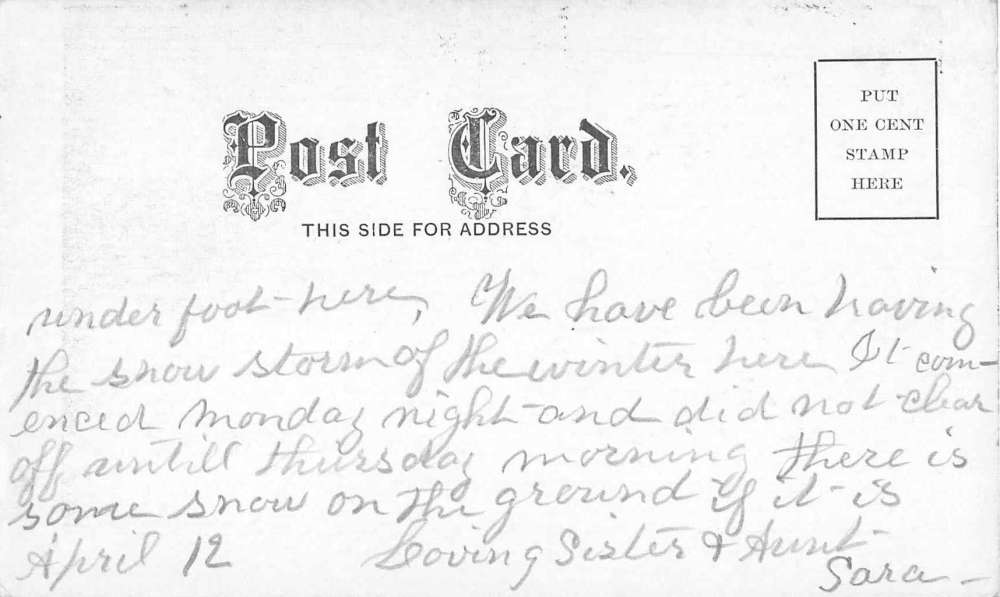 Post Card.
THIS SIDE FOR ADDRESS
PUT
ONE CENT
STAMP
HERE
under foot here, We have been having
the snow storm of the winter here It com-
enced monday night and did not clear
off untill thursday morning there is
some snow on the ground if it is
April 12 Loving Sister & Aunt
Sara -